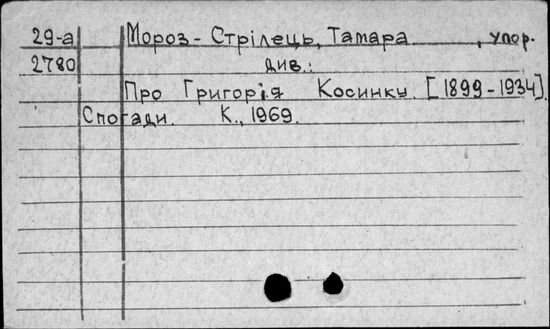 29-а Мороз-Стрілець, Тамара , упор.
2780 див.:
Про Григорія Косинку. [1899-1934].
Спогади. К., 1969.